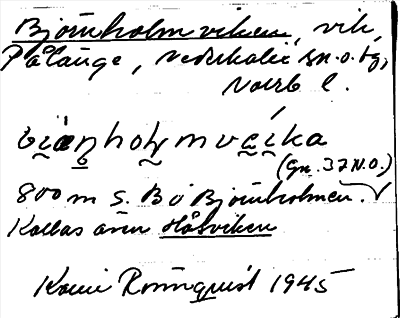 Björnholmviken, vik,
Pålänge, Nederkalix sn. o. tg,
Norrb l.
(Gn. 37 N.O.)
800 m S. Bö Björnholmen.
Kallas även Håtviken
Rönnquist 1945